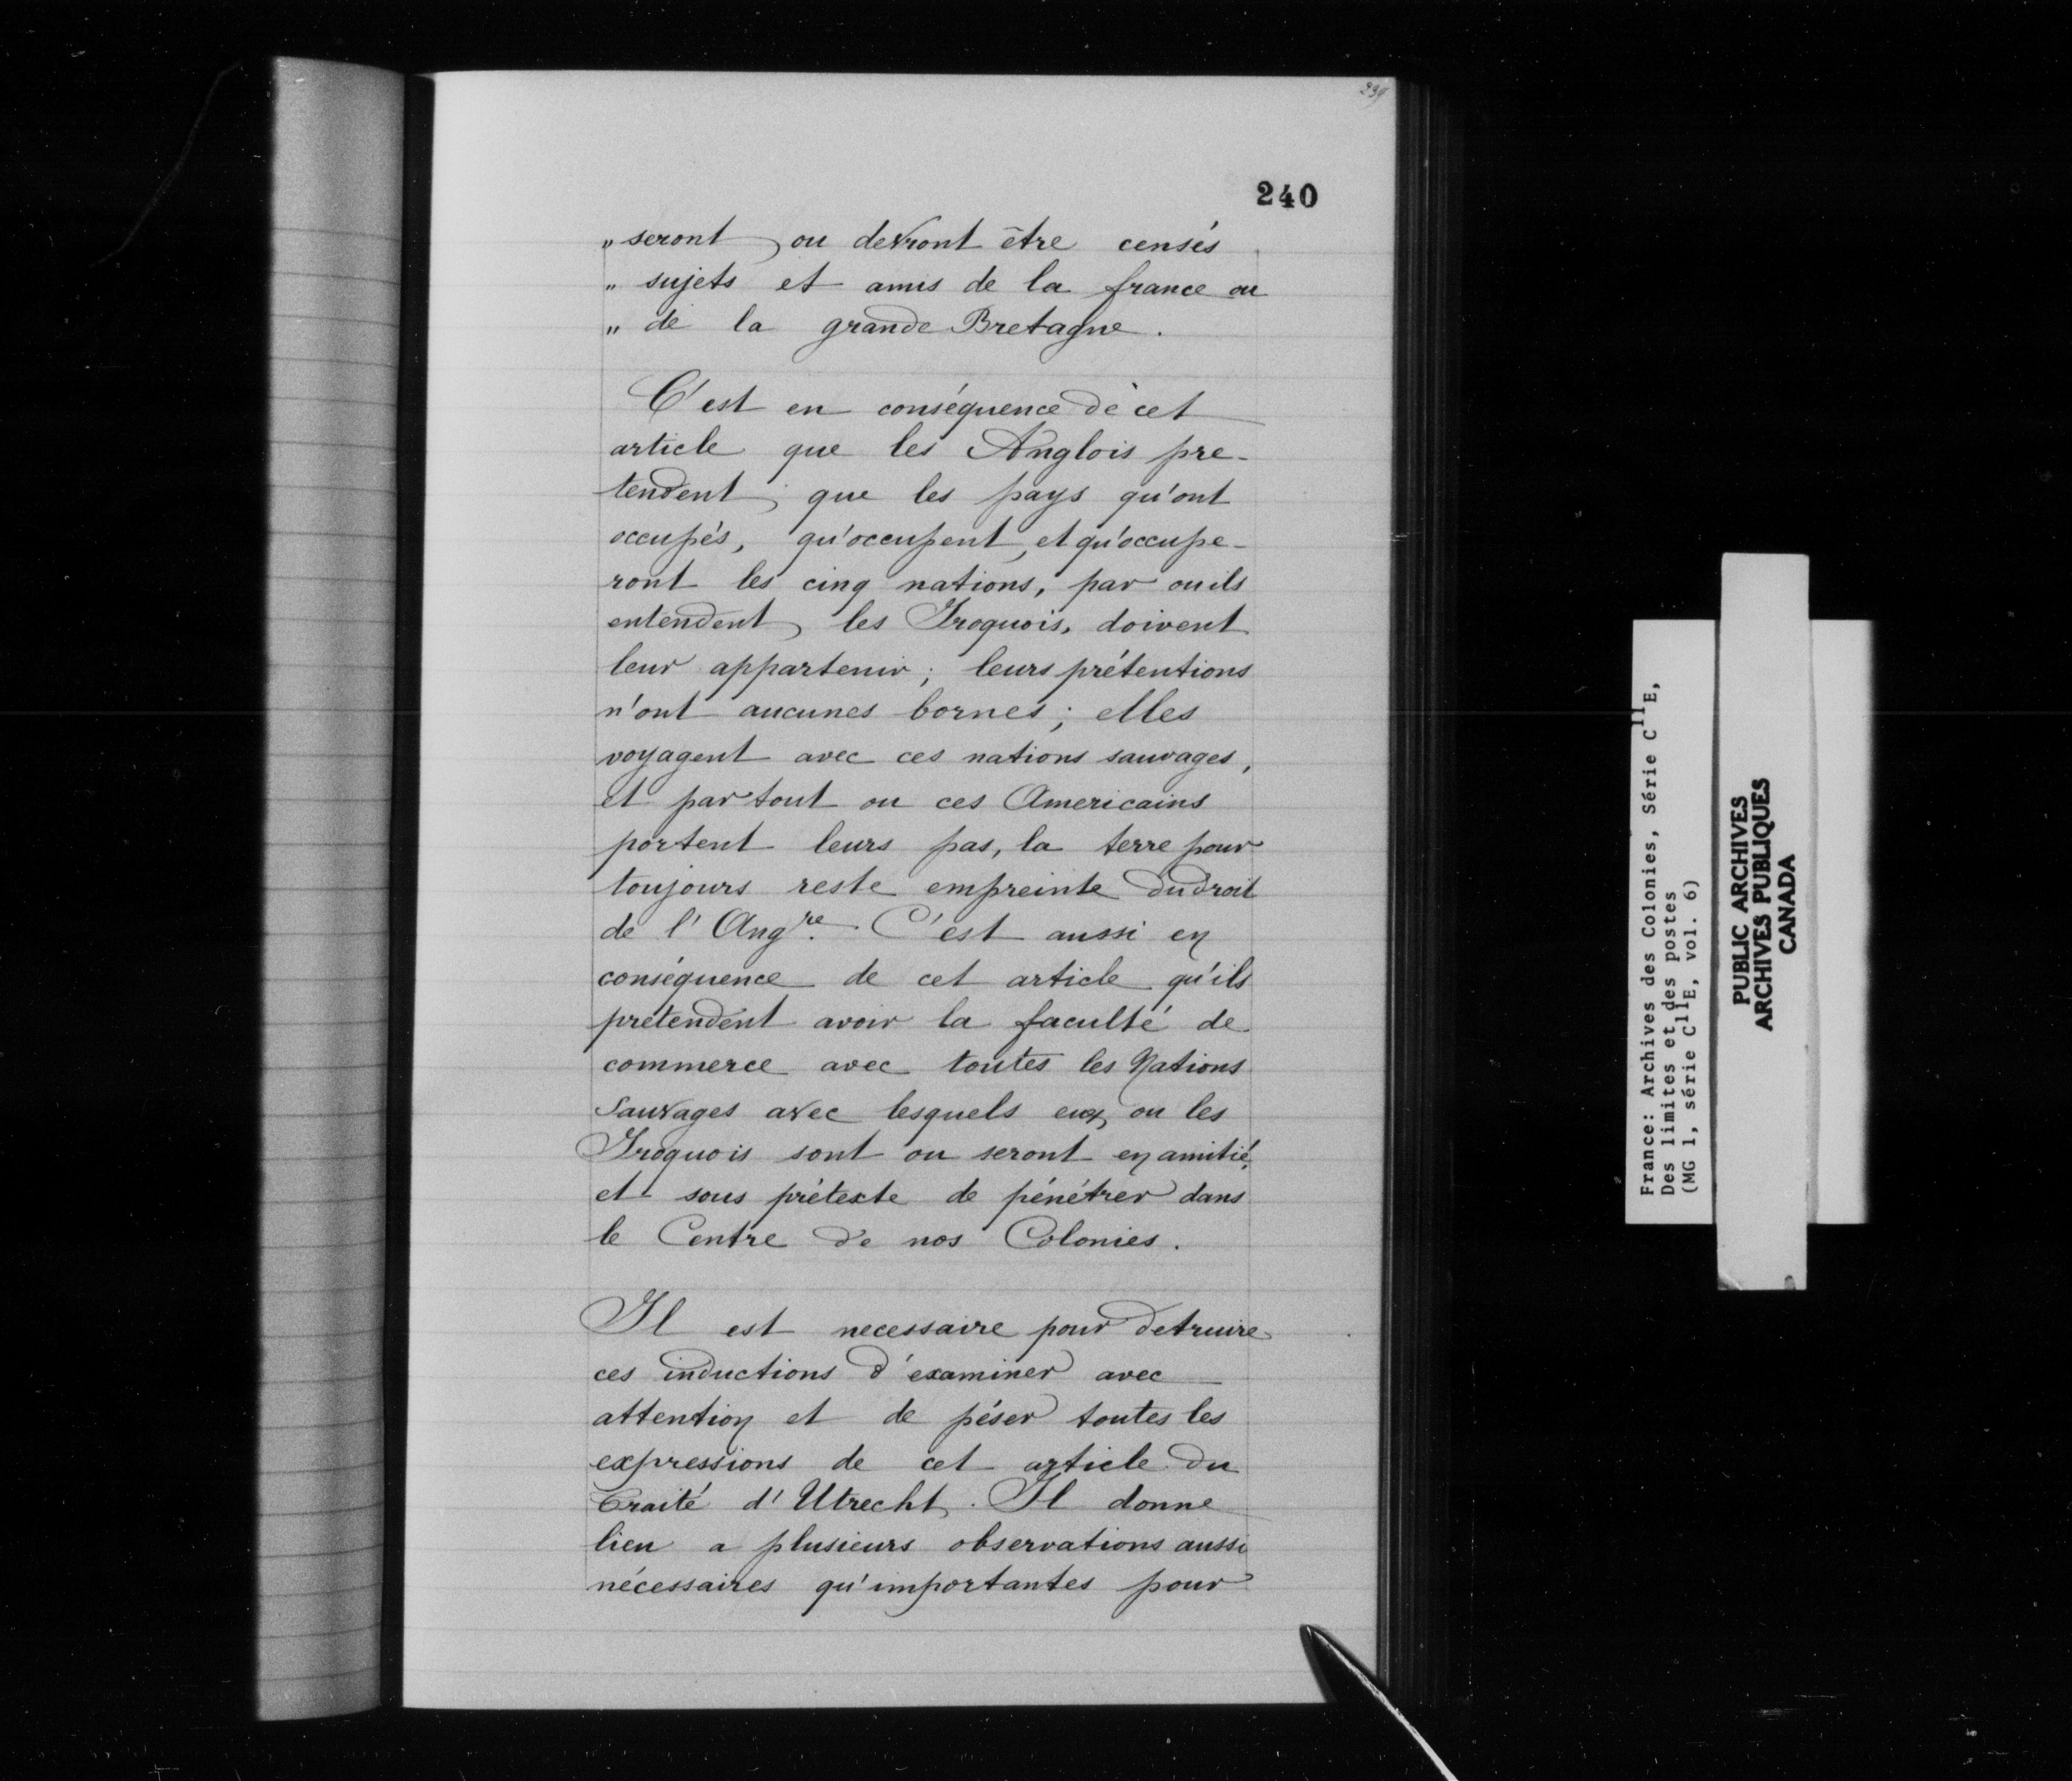 239
240
„ seront ou devront être censés
„ sujets et amis de la france ou
„ de la grande Bretagne.
C'est en conséquence de cet
article que les Anglois pre-
tendent que les pays qu'ont
occupés, qu'occupent, et qu'occupe-
ront les cinq nations, par ou ils
entendent les Iroquois, doivent
leur appartenir; leurs prétentions
n'ont aucunes bornes; elles
voyagent avec ces nations sauvages,
et par tout ou ces Americains
portent leurs pas, la terre pour
toujours reste empreinte du droit
de l'Angre. C'est aussi en
conséquence de cet article qu'ils
prétendent avoir la faculté de
commerce avec toutes les Nations
Sauvages avec lesquels eux, ou les
Iroquois sont ou seront en amitié,
et sous prétexte de pénétrer dans
le Centre de nos Colonies.
Il est necessaire pour detruire
ces inductions d'examiner avec
attention et de péser toutes les
expressions de cet article du
Traité d'Utrecht. Il donne
lieu a plusieurs observations aussi
nécessaires qu'importantes pour
France: Archives des Colonies, Série C11E,
Des limites et des postes
(MG 1, série C11E, vol. 6)
PUBLIC ARCHIVES
ARCHIVES PUBLIQUES
CANADA